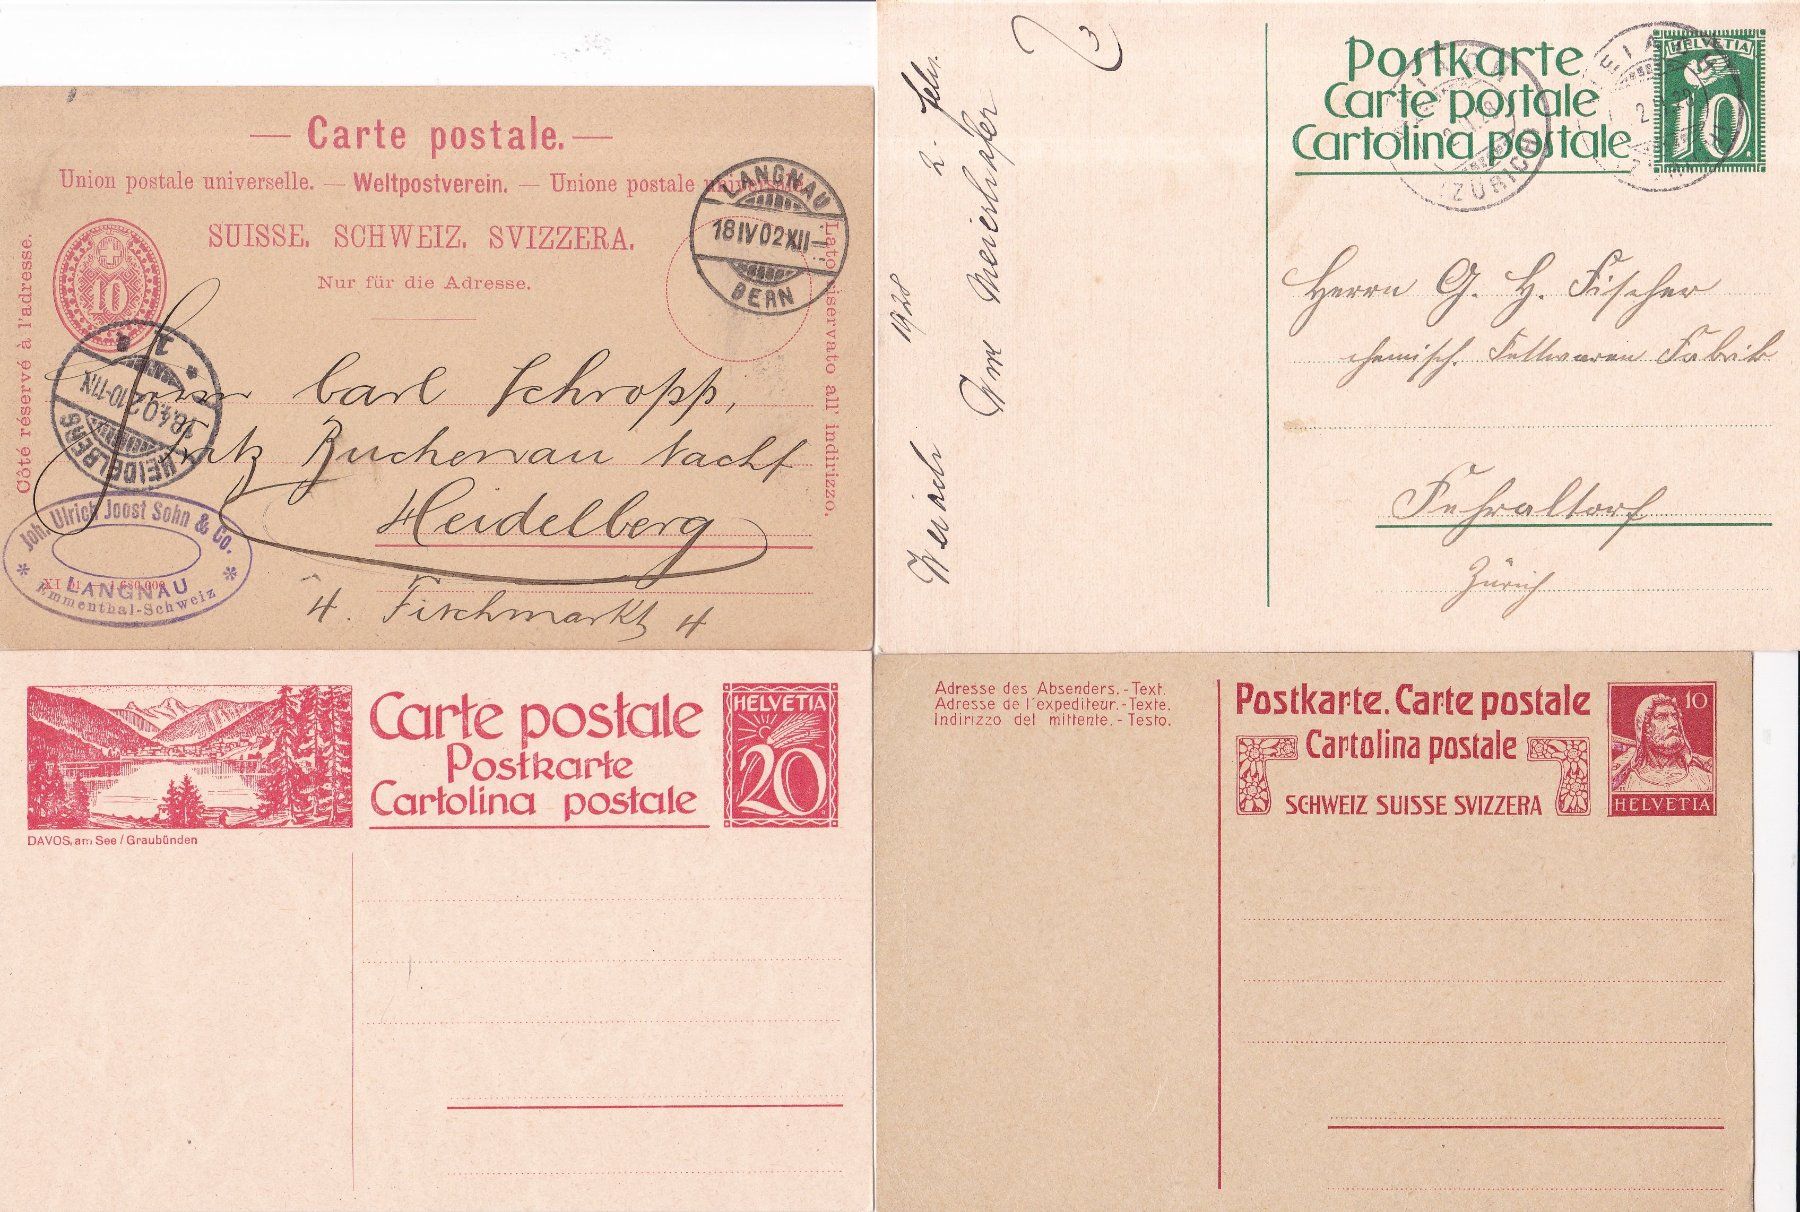 — Carte postale. —
Union postale universelle. — Weltpostverein. — Unione postale universale.
SUISSE. SCHWEIZ. SVIZZERA.
Nur für die Adresse.
Côté réservé à l'adresse.
Lato riservato all' indirizzo.
10
LANGNAU
18 IV 02 XII—
BERN
HEIDELBERG
18.4.02.10-11N.
1 a
Herrn Carl Schropp,
Fritz Buchenau Nachf
Heidelberg
4. Fischmarkt 4
Joh. Ulrich Joost Sohn & Co.
LANGNAU
Emmenthal-Schweiz
XI 01
Postkarte
Carte postale
Cartolina postale
HELVETIA
10
(ZÜRICH)
2. Febr. 1928
Meierhofer
Herrn G. H. Fischer
chemisch. Fettwaren Fabrik
Fehraltorf
Zürich
DAVOS, am See / Graubünden
Carte postale
Postkarte
Cartolina postale
HELVETIA
20
Adresse des Absenders. - Text.
Adresse de l'expediteur. - Texte.
Indirizzo del mittente. - Testo.
Postkarte. Carte postale
Cartolina postale
SCHWEIZ SUISSE SVIZZERA
10
HELVETIA